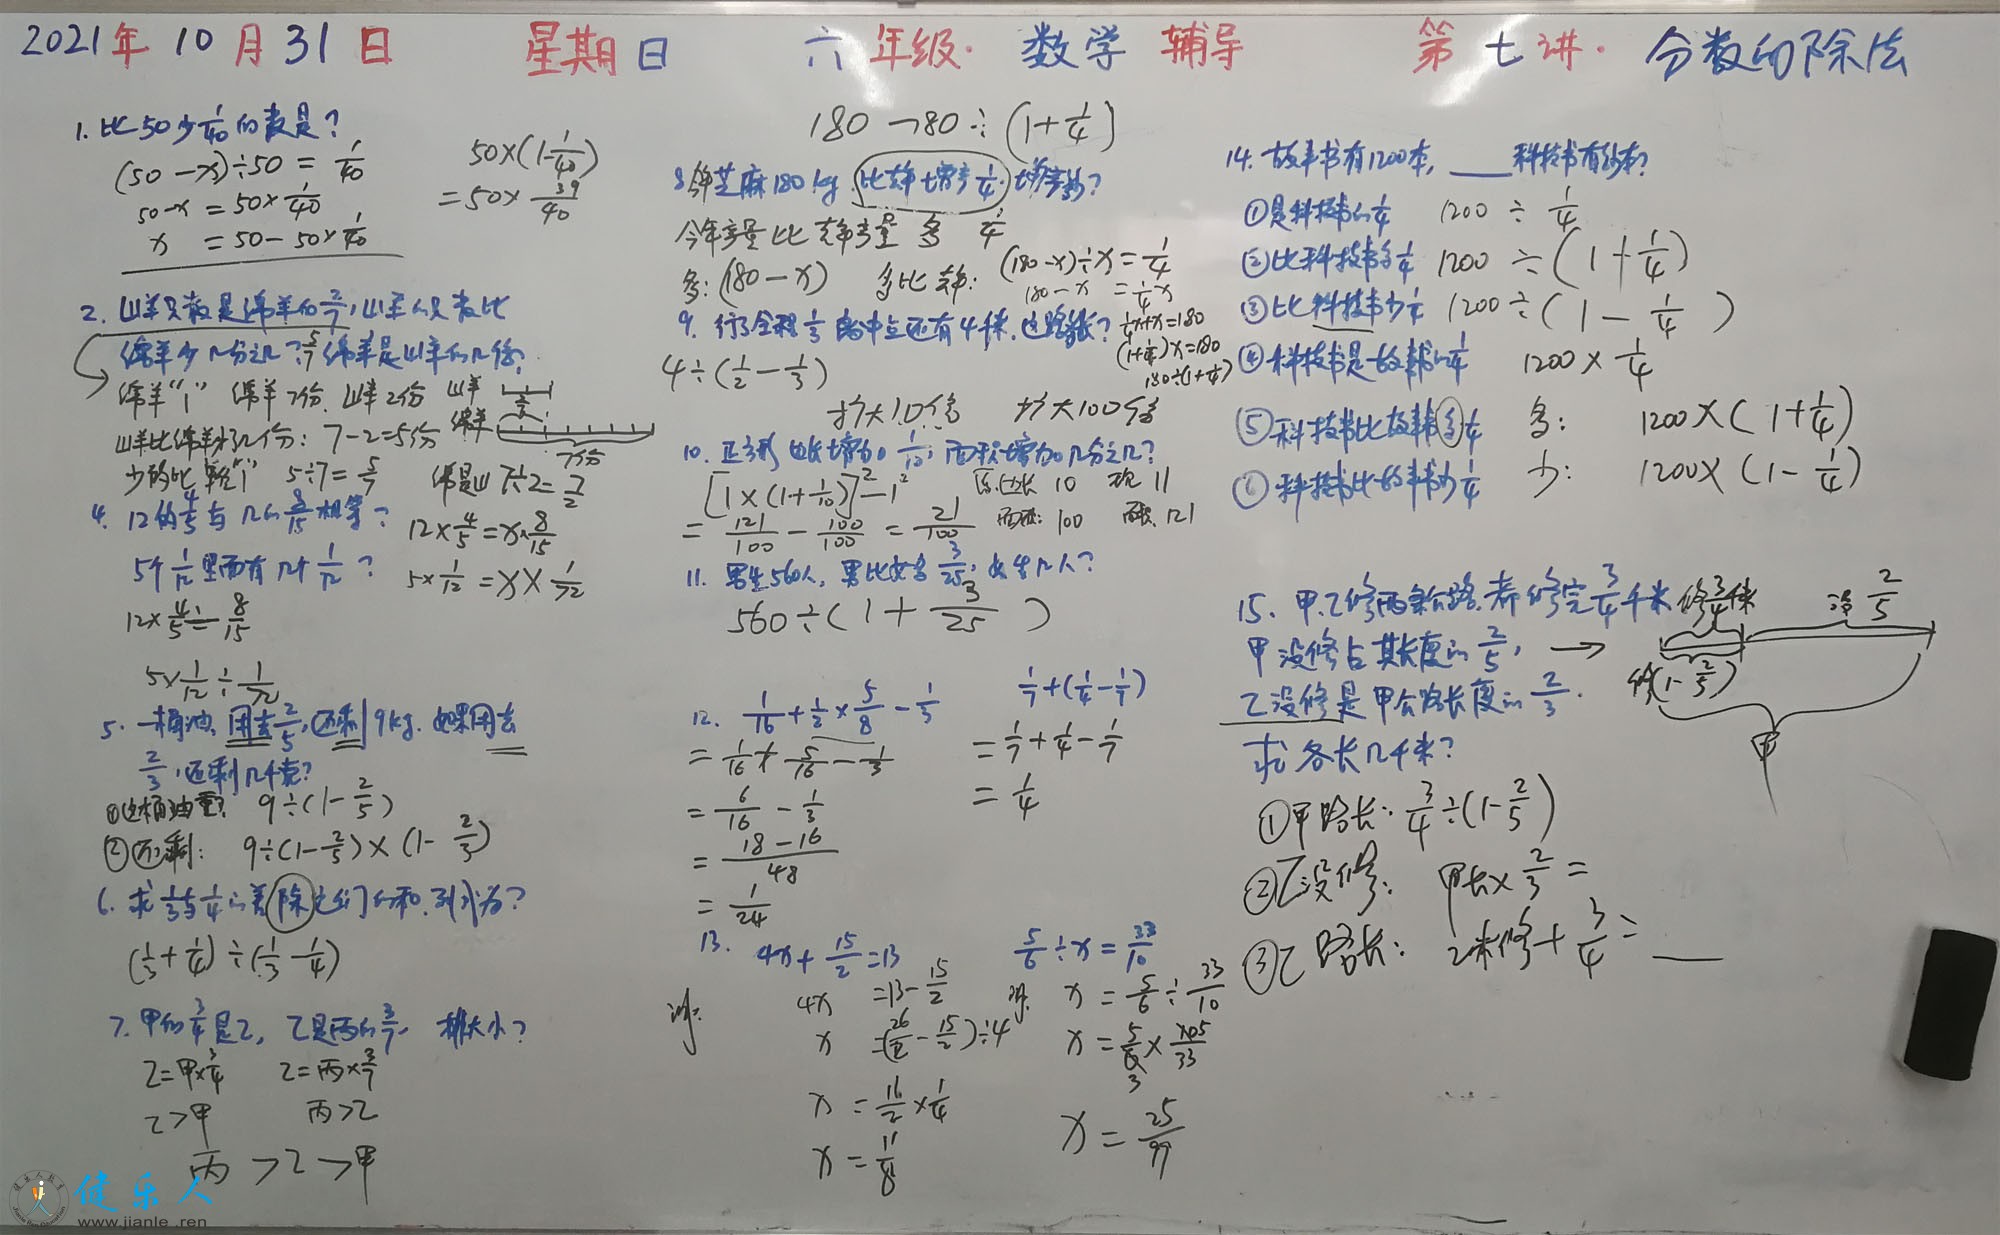 2021年 10 月 31 日 星期日 六年级. 数学 辅导 第七讲. 分数的除法
1. 比50少1/40的数是?
(50-x)÷50 = 1/40
50-x = 50×1/40
x = 50-50×1/40
50×(1-1/40)
=50×39/40
2. 山羊只数是绵羊的2/7,山羊的只数比
绵羊少几分之几?5/7 绵羊是山羊的几倍?
绵羊“1” 绵羊7份. 山羊2份 山羊
绵羊
7份
山羊比绵羊少几份: 7-2=5份
少的比单位“1” 5÷7=5/7 绵是山 7÷2=7/2
4. 12的4/5与几的8/15相等?
12×4/5=x×8/15
5个1/12里面有几个1/72?
5×1/12=x×1/72
12×4/5÷8/15
5×1/12÷1/72
5. 一桶油,用去2/5,还剩9kg.如果用去
2/3,还剩几千克?
①这桶油重? 9÷(1-2/5)
②还剩: 9÷(1-2/5)×(1-2/3)
6. 求1/3与1/4的差除它们的和,列式为?
(1/3+1/4)÷(1/3-1/4)
7. 甲的3/4是乙, 乙是丙的3/7, 排大小?
乙=甲×3/4 乙=丙×3/7
乙>甲 丙>乙
丙>乙>甲
180 -180÷(1+1/4)
8. 今年芝麻180kg.比去年增产1/4.增产多少?
今年产量比去年产量 多 1/4
多:(180-x) 多比去年: (180-x)÷x=1/4
180-x =1/4x
1/4x+x=180
(1+1/4)x=180
180÷(1+1/4)
9. 行了全程1/3 离中点还有4千米.这路多长?
4÷(1/2-1/3)
扩大10倍 扩大100倍
10. 正方形 边长增加1/10, 面积增加几分之几?
[1×(1+1/10)]²-1² 原:边长 10 现 11
=121/100-100/100=21/100 面积: 100 面积. 121
11. 男生560人, 男比女多3/25, 女生几人?
560÷(1+3/25)
12. 1/16+1/2×5/8-1/3
=1/16+5/16-1/3
=6/16-1/3
=18-16/48
=1/24
1/7+(1/4-1/7)
=1/7+1/4-1/7
=1/4
13. 4x+15/2=13
解: 4x =13-15/2
x =(26/2-15/2)÷4
x =11/2×1/4
x =11/8
5/6÷x=33/10
解. x=5/6÷33/10
x=5/6×10/33
x=25/99
14. 故事书有1200本, ____科技书有多少本?
①是科技书的1/4 1200 ÷ 1/4
②比科技书多1/4 1200 ÷(1+1/4)
③比科技书少1/4 1200÷(1-1/4)
④科技书是故事书的1/4 1200×1/4
⑤科技书比故事书多1/4 多: 1200×(1+1/4)
⑥科技书比故事书少1/4 少: 1200×(1-1/4)
15. 甲.乙修两条公路.都修完3/4千米
甲没修占其长度的2/5, →
乙没修是甲公路长度的2/3.
求各长几千米?
修3/4千米 没2/5
修(1-2/5)
甲
①甲路长: 3/4÷(1-2/5)
②乙没修: 甲长×2/3=
③乙路长: 乙未修+3/4=____
健乐人
www.jianle.ren